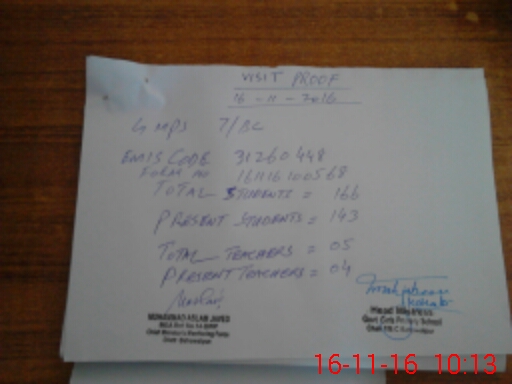 VISIT PROOF
16 - 11 - 2016
G MPS 7/BC
EMIS CODE 31260448
FORM NO 161116100568
TOTAL STUDENTS = 166
PRESENT STUDENTS = 143
TOTAL TEACHERS = 05
PRESENT TEACHERS = 04
MUHAMMAD ASLAM JAVED
Head Mistress
Govt. Girls Primary School
16-11-16 10:13